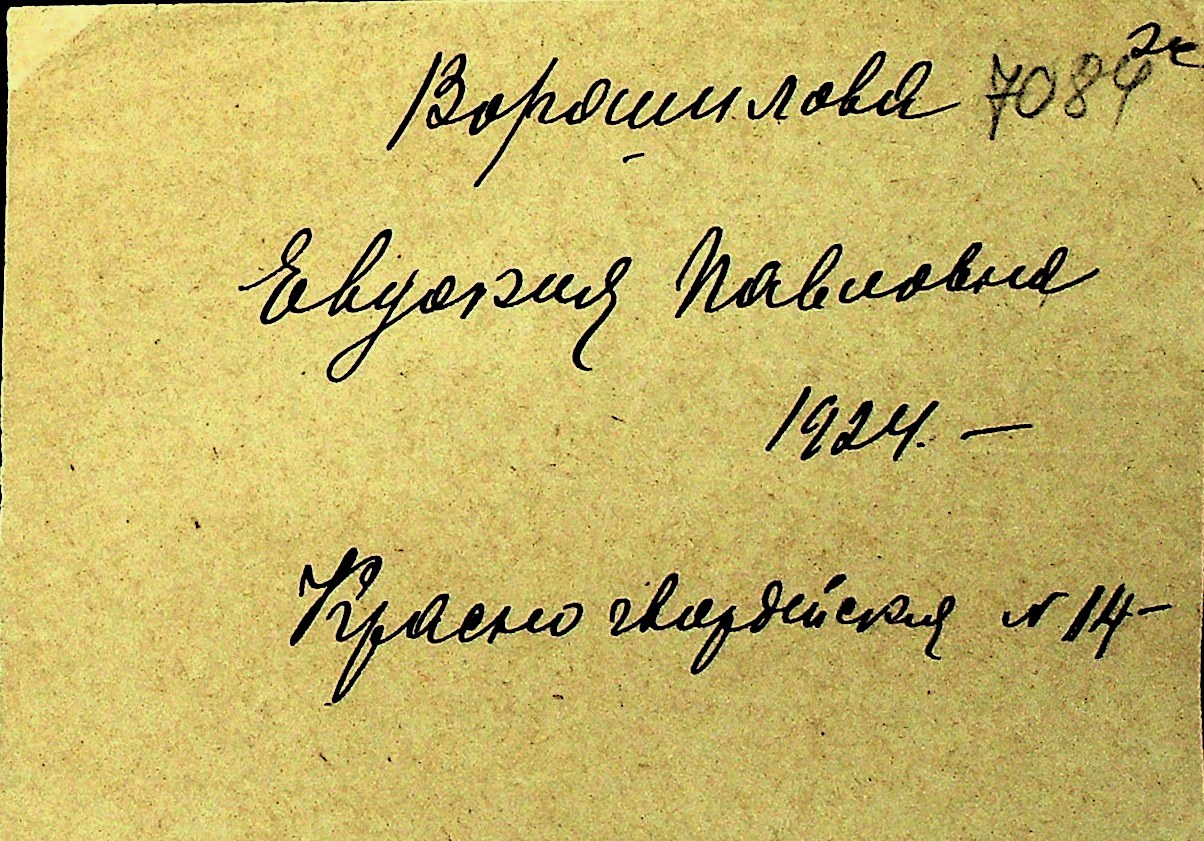 Ворошилова 7084
Евдокия Павловна
1924. —
Красно гвардейская № 14-